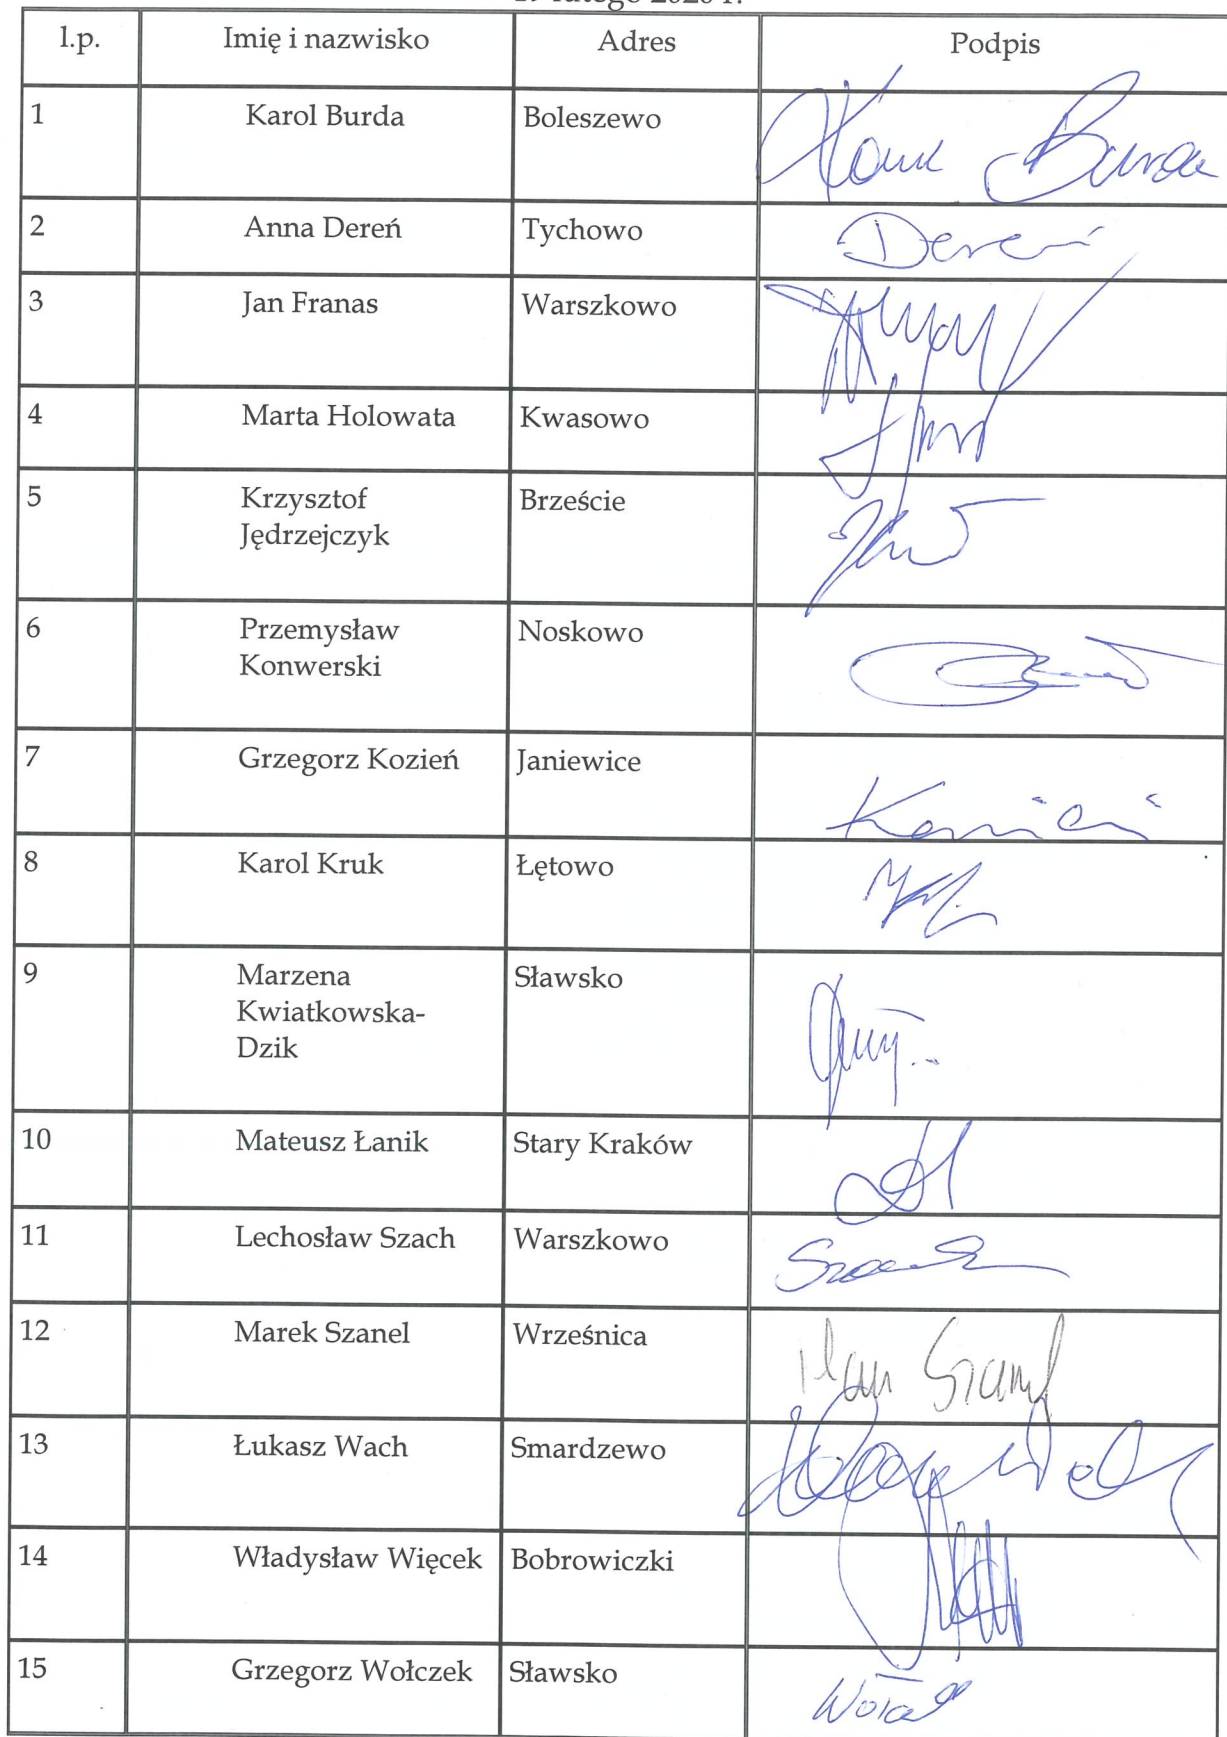 l.p. Imię i nazwisko Adres Podpis
1 Karol Burda Boleszewo Burda
2 Anna Dereń Tychowo Dereń
3 Jan Franas Warszkowo
4 Marta Holowata Kwasowo
5 Krzysztof Brzeście
Jędrzejczyk
6 Przemysław Noskowo
Konwerski
7 Grzegorz Kozień Janiewice
8 Karol Kruk Łętowo
9 Marzena Sławsko
Kwiatkowska-
Dzik
10 Mateusz Łanik Stary Kraków
11 Lechosław Szach Warszkowo
12 Marek Szanel Wrześnica
13 Łukasz Wach Smardzewo
14 Władysław Więcek Bobrowiczki
15 Grzegorz Wołczek Sławsko